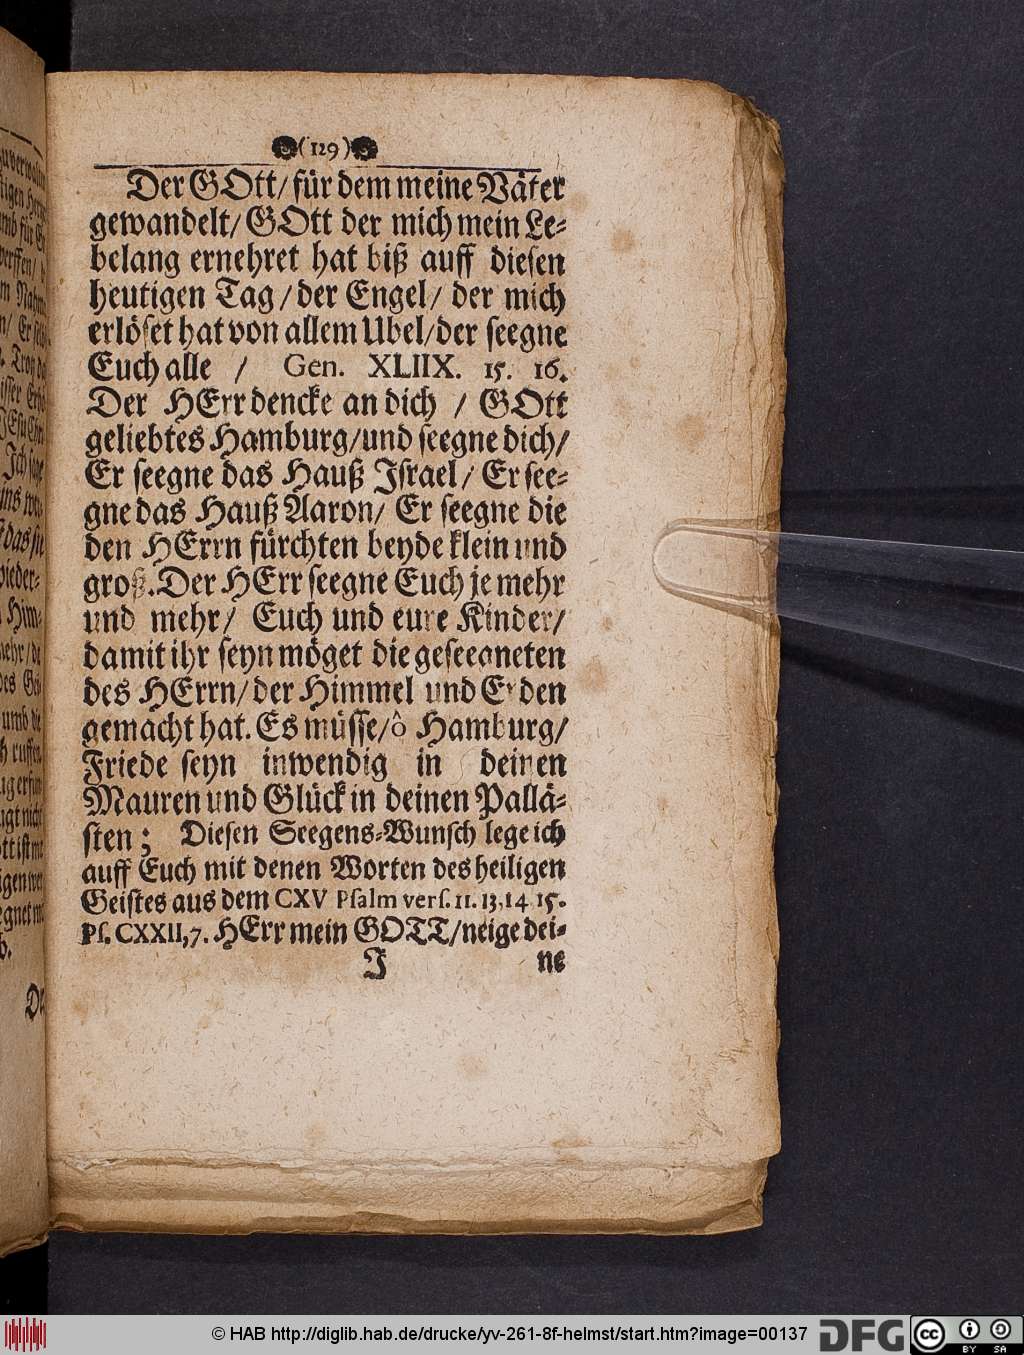 (129)
Der GOtt/ für dem meine Väter
gewandelt/ GOtt der mich mein Le-
belang ernehret hat biß auff diesen
heutigen Tag/ der Engel/ der mich
erlöset hat von allem Ubel/ der seegne
Euch alle / Gen. XLIIX. 15. 16.
Der HErr dencke an dich / GOtt
geliebtes Hamburg/ und seegne dich/
Er seegne das Hauß Israel/ Er see-
gne das Hauß Aaron/ Er seegne die
den HErrn fürchten beyde klein und
groß. Der HErr seegne Euch je mehr
und mehr/ Euch und eure Kinder/
damit ihr seyn möget die geseegneten
des HErrn/ der Himmel und Erden
gemacht hat. Es müsse/ ô Hamburg/
Friede seyn inwendig in deinen
Mauren und Glück in deinen Pallä-
sten; Diesen Seegens-Wunsch lege ich
auff Euch mit denen Worten des heiligen
Geistes aus dem CXV Psalm vers. 11. 13, 14 15.
Ps. CXXII, 7. HErr mein GOTT/ neige dei-
J ne
© HAB http://diglib.hab.de/drucke/yv-261-8f-helmst/start.htm?image=00137
DFG
cc BY SA